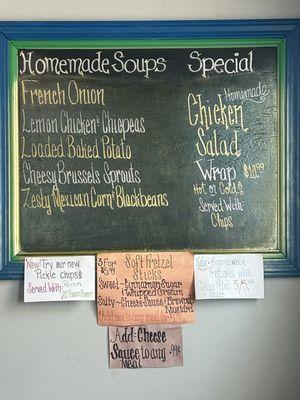 Homemade Soups
French Onion
Lemon Chicken & Chicpeas
Loaded Baked Potato
Cheesy Brussels Sprouts
Zesty Mexican Corn & Blackbeans
Special
Homemade
Chicken
Salad
Wrap
Hot or Cold
Served With
Chips
New! Try our new
Pickle Chips
Served With: Ranch
3 For
Soft Pretzel
Sticks
Sweet - Cinnamon Sugar
& Whipped Cream
Salty - Cheese Sauce & Brown
Mustard
Add one to any meal
Pretzels with
3/5.00
Add-Cheese
Sauce to any .99¢
Meal